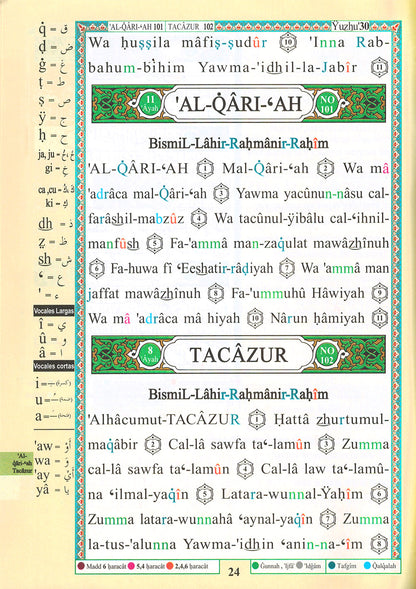 'AL-QÂRI-ʿAH 101 | TACÂZUR 102
Ÿuzhu'30
Wa ḥuṣṣila mâfiṣ-ṣudûr 10 'Inna Rab-
bahum-bihim Yawma-'idhil-la-Jabîr 11
11 Âyah
'AL-Q̇ÂRI-ʿAH
NO 101
BismiL-Lâhir-Raḥmânir-Raḥîm
'AL-Q̇ÂRI-ʿAH 1 Mal-Q̇âri-ʿah 2 Wa mâ
'adrâca mal-Q̇âri-ʿah 3 Yawma yacûnun-nâsu cal-
farâshil-mabzûz 4 Wa tacûnul-ÿibâlu cal-ʿihnil-
manfûsh 5 Fa-'ammâ man-zaq̇ulat mawâzhînuh
6 Fa-huwa fî ʿEeshatir-râḍiyah 7 Wa 'ammâ man
jaffat mawâzhînuh 8 Fa-'ummuhû Hâwiyah 9
Wa mâ 'adrâca mâ hiyah 10 Nârun ḥâmiyah 11
8 Âyah
TACÂZUR
NO 102
BismiL-Lâhir-Raḥmânir-Raḥîm
'Alhâcumut-TACÂZUR 1 Ḥattâ zhurtumul-
maq̇âbir 2 Cal-lâ sawfa taʿ-lamûn 3 Zumma
cal-lâ sawfa taʿ-lamûn 4 Cal-lâ law taʿ-lamû-
na ʿilmal-yaq̇în 5 Latara-wunnal-Ÿaḥîm 6
Zumma latara-wunnahâ ʿaynal-yaq̇în 7 Zumma
la-tus-'alunna Yawma-'idhin ʿanin-naʿîm 8
Madd 6 ḥaracât 5,4 ḥaracât 2,4,6 ḥaracât
24
Ġunnah, 'Ijfâ' 'Idġâm Tafgîm Q̇alq̇alah
q̇ = ق
ḍ = ض
ġ = غ
ṭ = ط
ṣ = ص
ÿ = ج
ḥ = ح
ja, ju = خَ، خُ
gi = خِ
ca,cu = كَ، كُ
ki = كِ
dh = ذ
ẓ = ظ
sh = ش
ʿ = ع
' = ء
Vocales Largas
î = ي
û = و
â = ا
Vocales cortas
i =
u =
a =
'aw = أَوْ
wa = وَ
'ay = أَيْ
yâ = يَا
'Al-
q̇âri-ʿah
Tacâzur